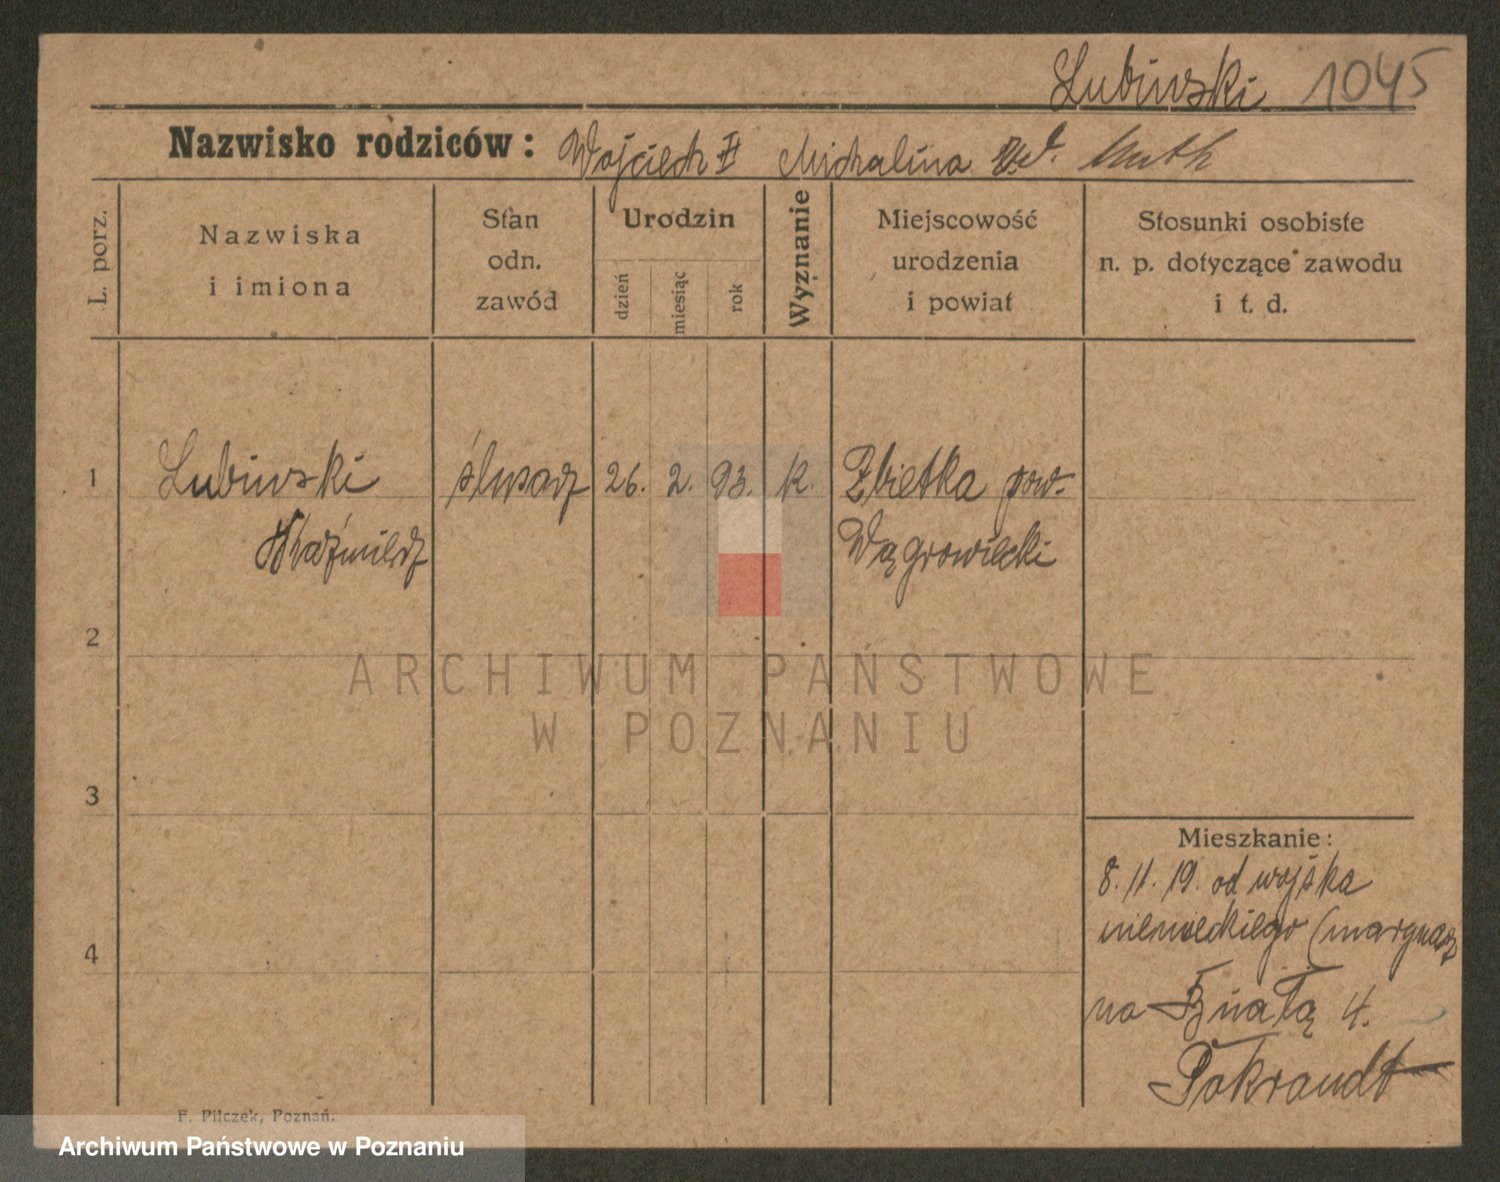 Lubiński 1045
Nazwisko rodziców: Wojciech † Michalina zd. Muth
L. porz.
Nazwiska
i imiona
Stan
odn.
zawód
Urodzin
dzień
miesiąc
rok
Wyznanie
Miejscowość
urodzenia
i powiat
Stosunki osobiste
n. p. dotyczące zawodu
i t. d.
1 Lubiński ślusarz 26. 2. 93. k. Zbietka pow.
Kaźmierz Wągrowiecki
2
ARCHIWUM PAŃSTWOWE
W POZNANIU
3
Mieszkanie:
8.11.19. od wojska
niemieckiego (marynarz
4
na 4.
Pokrandt
F. Pilczek, Poznań.
Archiwum Państwowe w Poznaniu